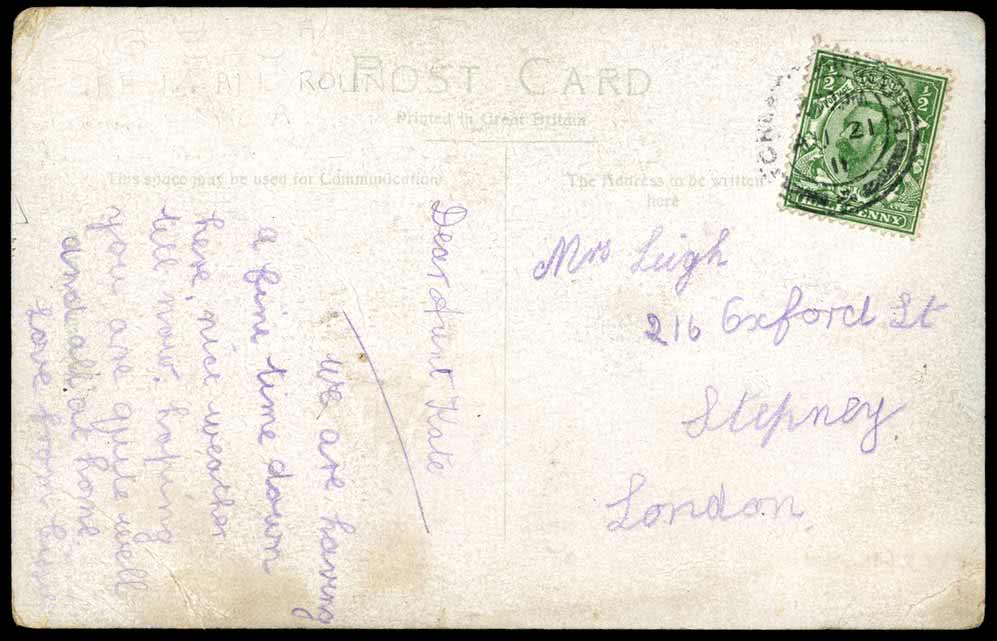 POST CARD
Printed in Great Britain
This space may be used for Communication
The Address to be written
here
½ ½
PENNY
21
11
Dear Aunt Kate
we are having
a fine time down
here, nice weather
till now. hoping
you are quite well
and all at home
Love from
Mrs Leigh
216 Oxford St
Stepney
London.